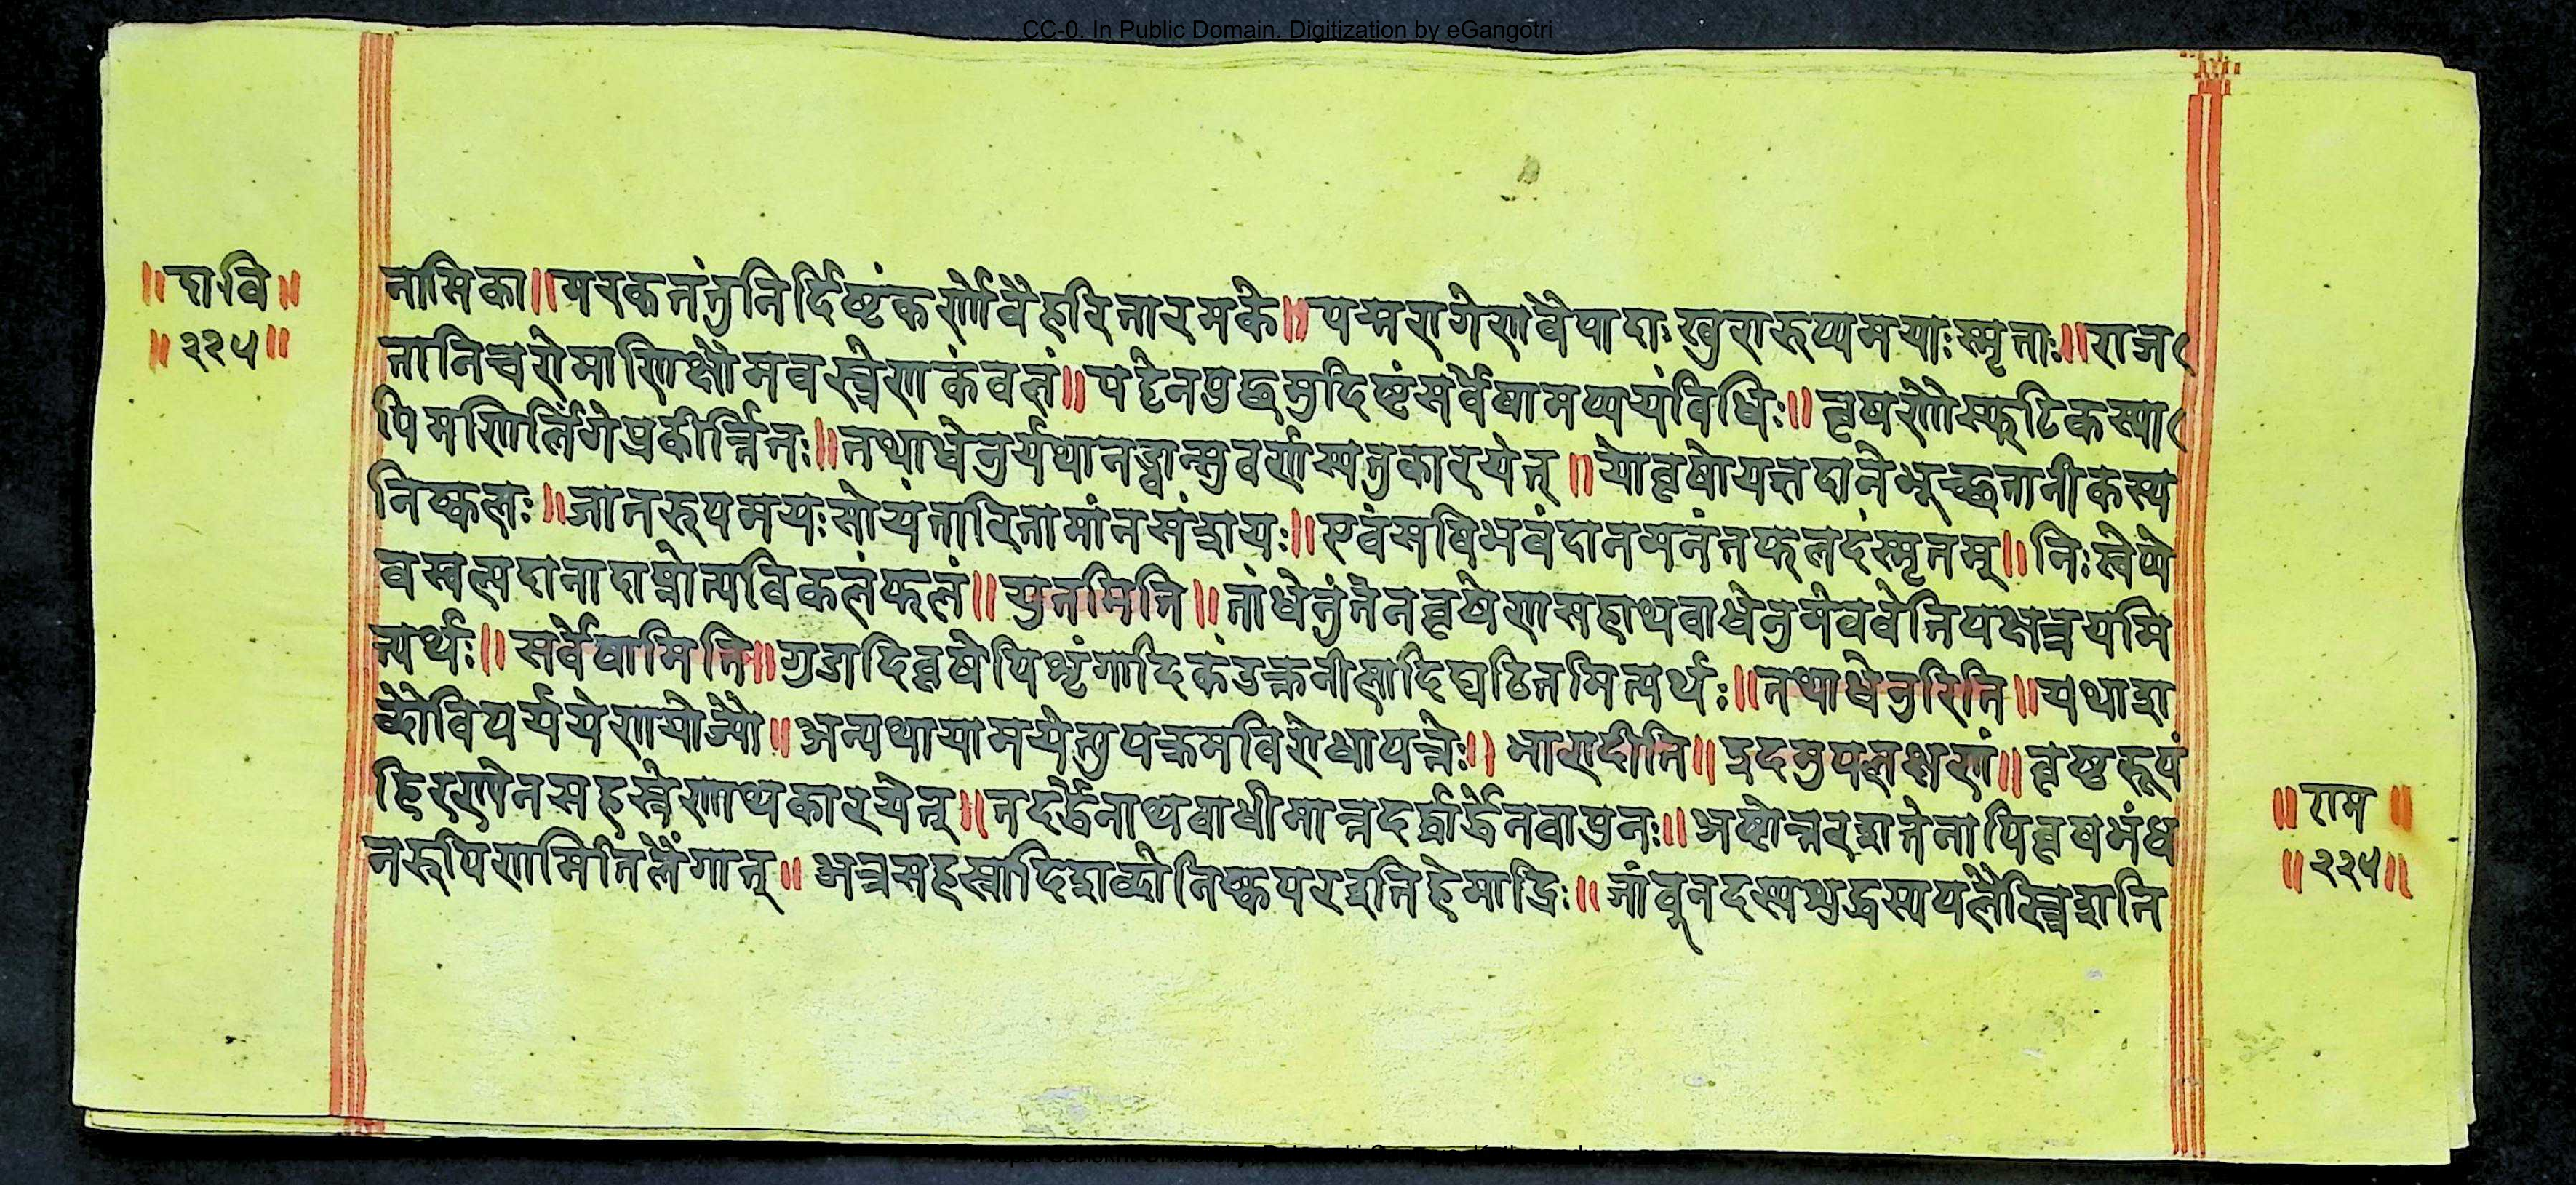 CC-0. In Public Domain. Digitization by eGangotri
॥दावि॥
॥२२५॥
नासिका॥मरकतंतुनिर्दिष्टंकर्णोवैहरितारमके॥पद्मरागेणवैपादाःखुरारूप्यमयाःस्मृताः॥राज
तानिचरोमाणिक्षौमवस्त्रेणकंवलं॥पट्टेनपुच्छमुदिष्टंसर्वेषामप्ययंविधिः॥वृषणोस्फटिकस्या
पिमणिलिंगेप्रकीर्त्तितः॥तथाधेनुर्यथानड्वान्सुवर्णस्यतुकारयेत्॥योवृषोयत्तदानेभूच्छतानीकस्य
निष्कलः॥जातरूपमयःसोयंतारितामांनसंशयः॥एवंसविभवंदानमनंतफलदंस्मृतम्॥निःस्वेप्ये
वस्वल्पदानादाप्नोत्यविकलंफलं॥युतमिति॥तांधेनुंतेनवृषेणसहाथवाधेनुमेववेतिपक्षत्रयमि
त्यर्थः॥सर्वेषामिति॥गुडादिवृषेपिशृंगादिकंउक्तनीलादिघटितमित्यर्थः॥तथाधेनुरिति॥यथाशा
ब्दोविपर्ययेणयोज्यो॥अन्यथायामयेतुपक्रमविरोधापत्तेः॥भारादीति॥इदमुपलक्षणं॥वृषरूपं
हिरण्येनसहस्रेणाथकारयेत्॥तदर्द्धेनाथवाधीमान्तदर्द्धार्द्धेनवापुनः॥अष्टोत्तरशतेनापिवृषभंध
र्मरूपिणमितिलैंगात्॥अत्रसहस्रादिशब्दोनिष्कपरइतिहेमाद्रिः॥जांबूनदस्यशुद्धस्यपलैस्त्रिंशति
॥राम॥
॥२२५॥